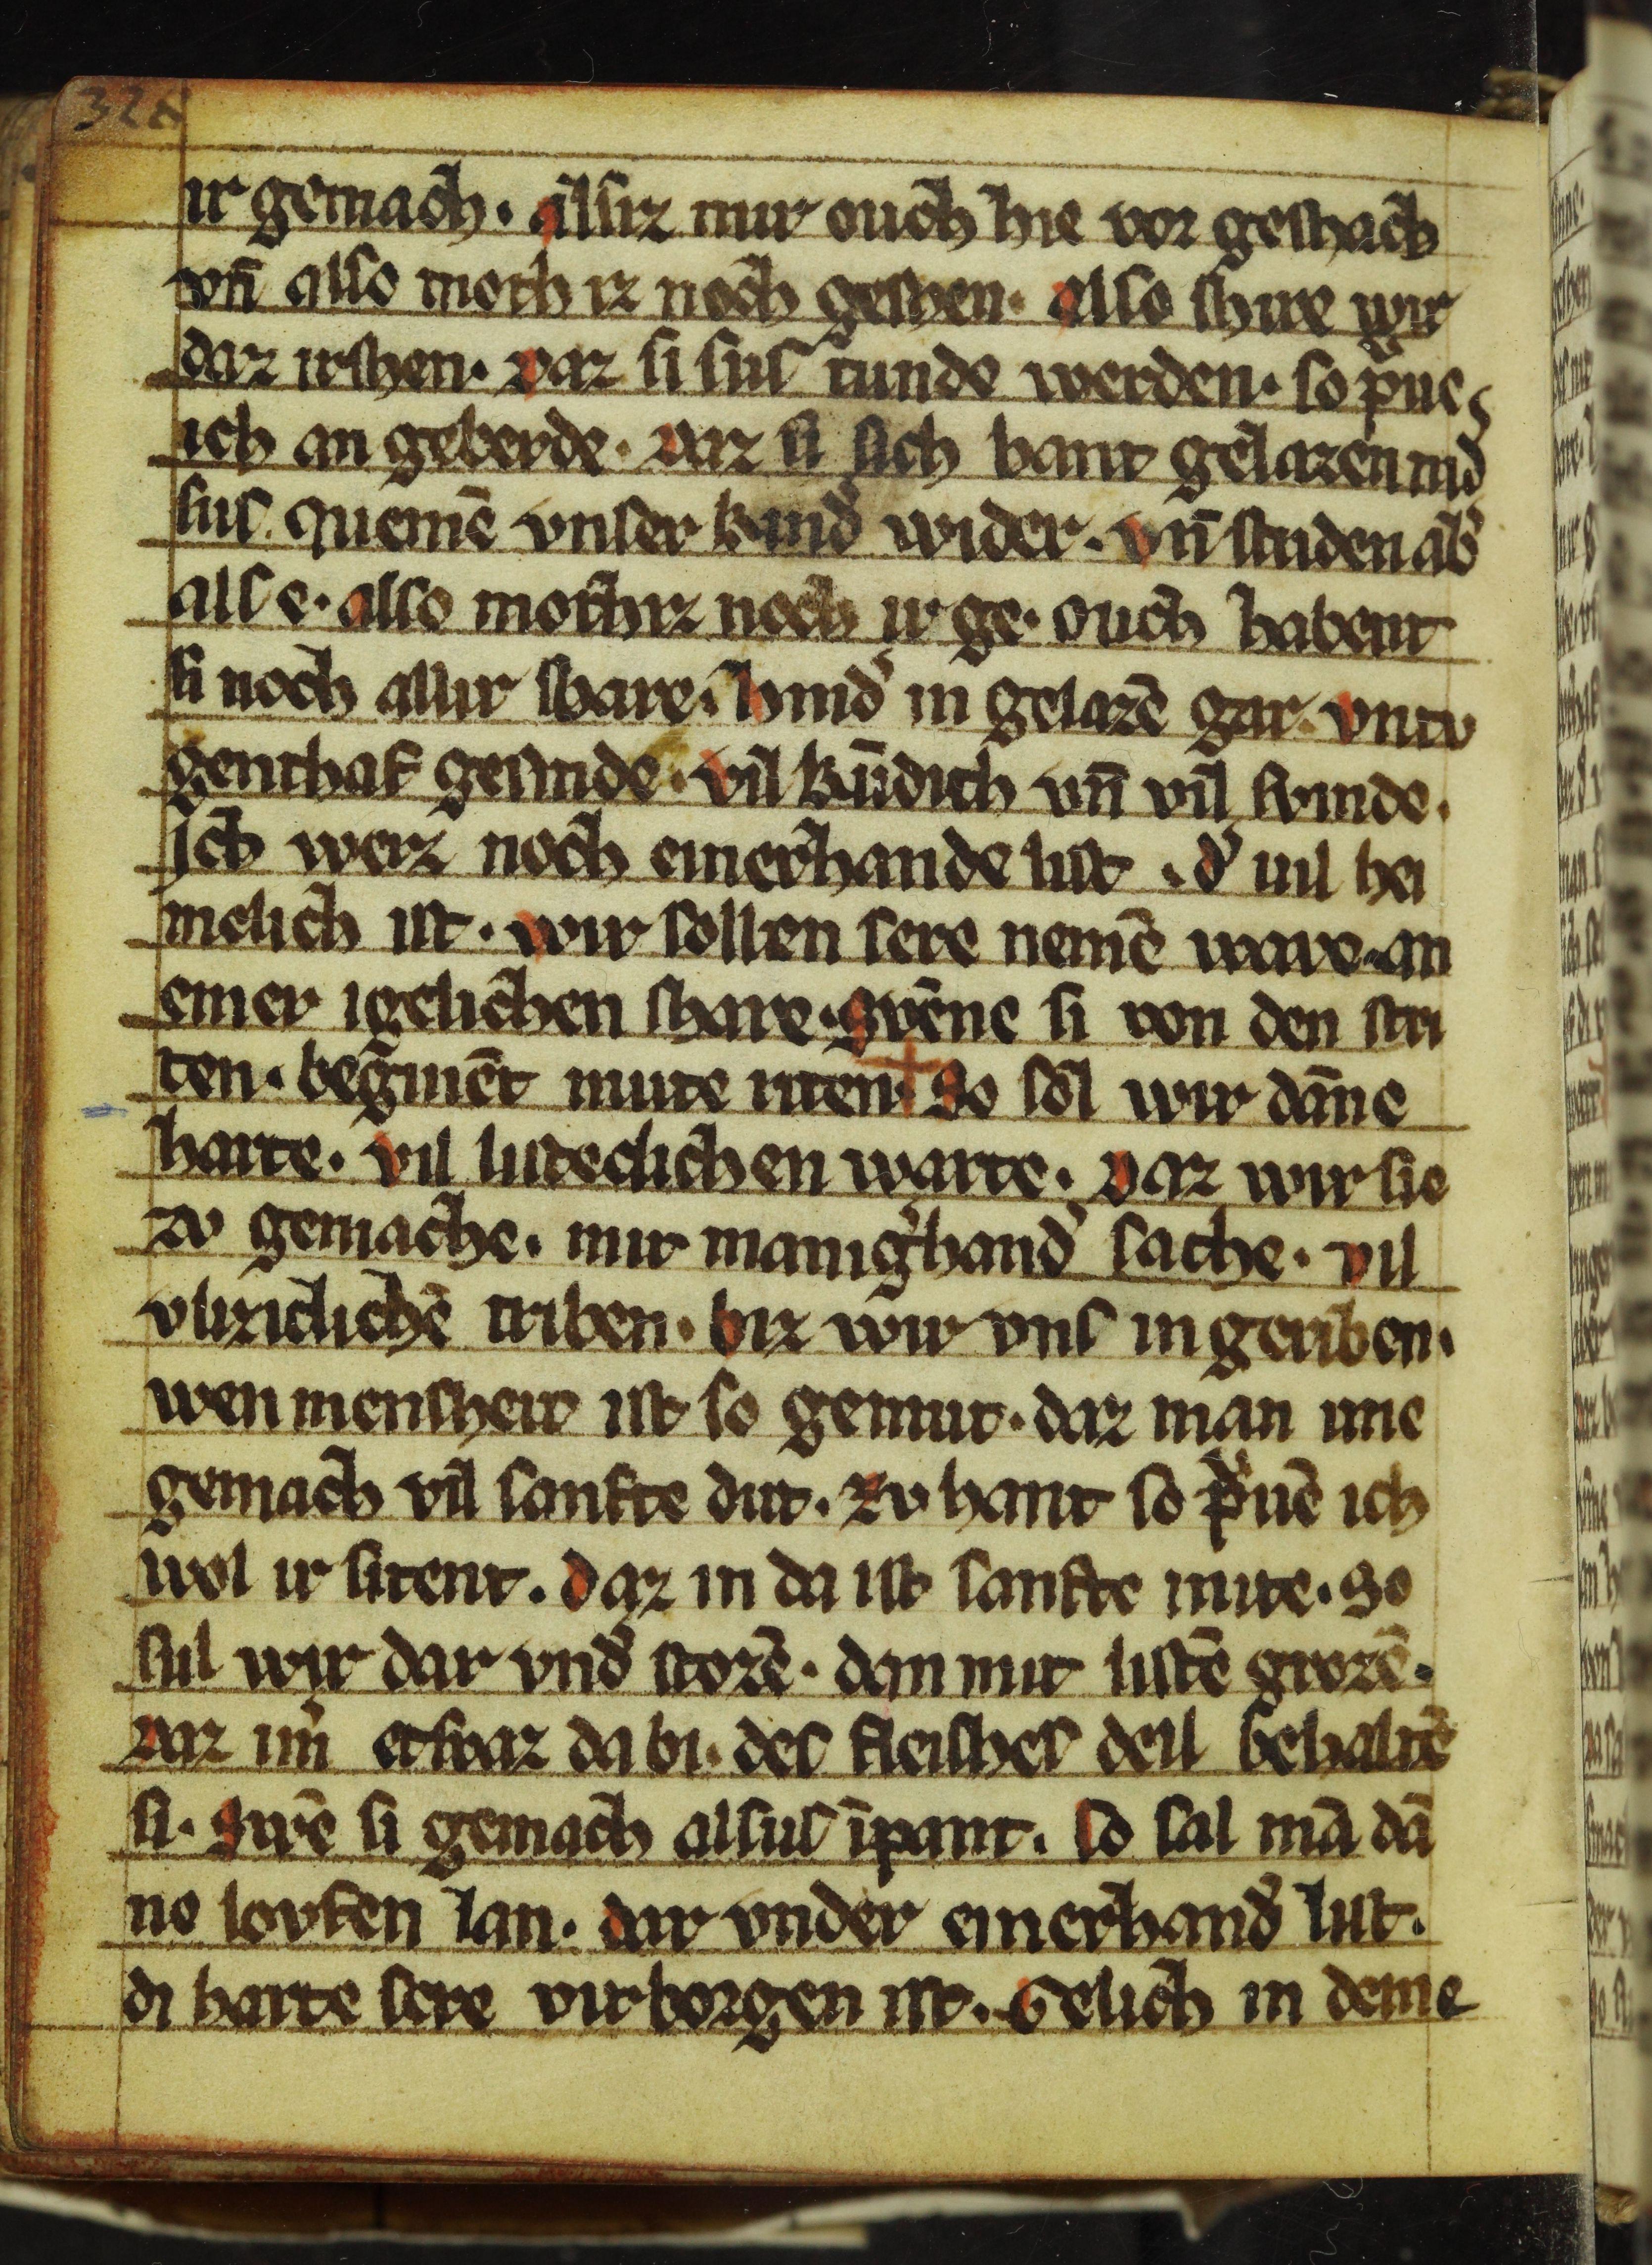 32a
ir gemach. alsiz mir ouch hie vor geshach
vñ also moch iz noch geshen. also shire wir
daz irshen. daz si sus runde werden. so pͮue
ich an geberde. daz si sich hant gelazen nid̾
sus quemē vnser kind̾ wider. vñ studen ab̾
als e. also mochtiz noch ir ge. ouch habent
si noch allir share. hind̾ in gelazē gar. vntv
genthaf gesinde. vil kūdich vñ vil swinde.
Ich weiz noch einerhande list. d̾ uil hei
melich ist. wir sollen sere nemē ware. an
einer igelichen share. swēne si von den stri
ten. beginēt mute riten. So sol wir dāne
harte. vil listeclichen warte. daz wir sie
zv gemache. mit manig̾hand̾ sache. vil
vlizichlichē triben. biz wir vns in geriben.
wen mensheit ist so gemut. daz man ime
gemach vil sanfte dut. Zv hant so p̾uē ich
wol ir sitent. daz in da ist sanfte mite. So
sul wir dar vnd̾ stozē. dan mit listē grozē.
daz im̄ etswaz da bi. des fleishes deil behaltē
si. swē si gemach alsus īpant. so sal mā dā
ne lovken lan. dar vnder einerhand̾ list.
di harte sere virborgen ist. Gelich in deme